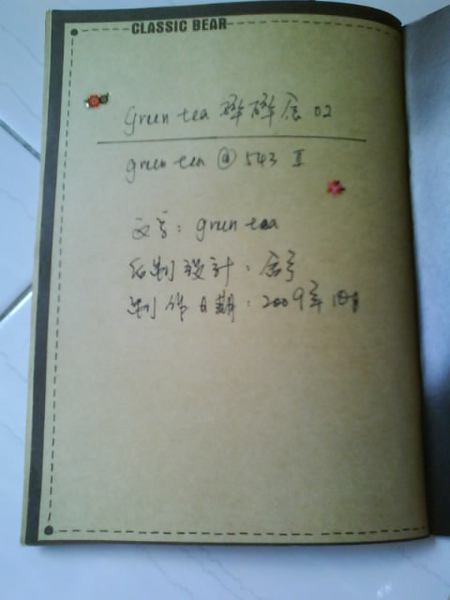 CLASSIC BEAR
green tea 碎碎念 02
green tea @ 543 II
文字：green tea
后制設計：
制作日期：2009年10月